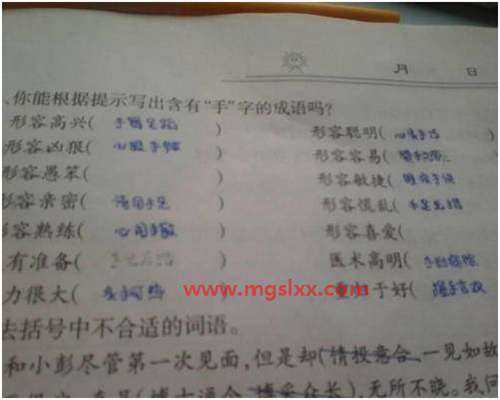 月 日
、你能根据提示写出含有“手”字的成语吗?
形容高兴( 手舞足蹈 ) 形容聪明( 心灵手巧
形容凶狠( 心狠手辣 ) 形容容易( 唾手可得
形容愚笨( ) 形容敏捷( 眼疾手快
容亲密( 情同手足 ) 形容慌乱( 手足无措
容熟练( ) 形容喜爱(
有准备( ) 医术高明( 手到病除
力很大( 炙手可热 ) 于好( 握手言欢
www.mgslxx.com
去括号中不合适的词语。
和小彭尽管第一次见面,但是却(情投意合 一见如故
(博古通今 博采众长),无所不晓。我问